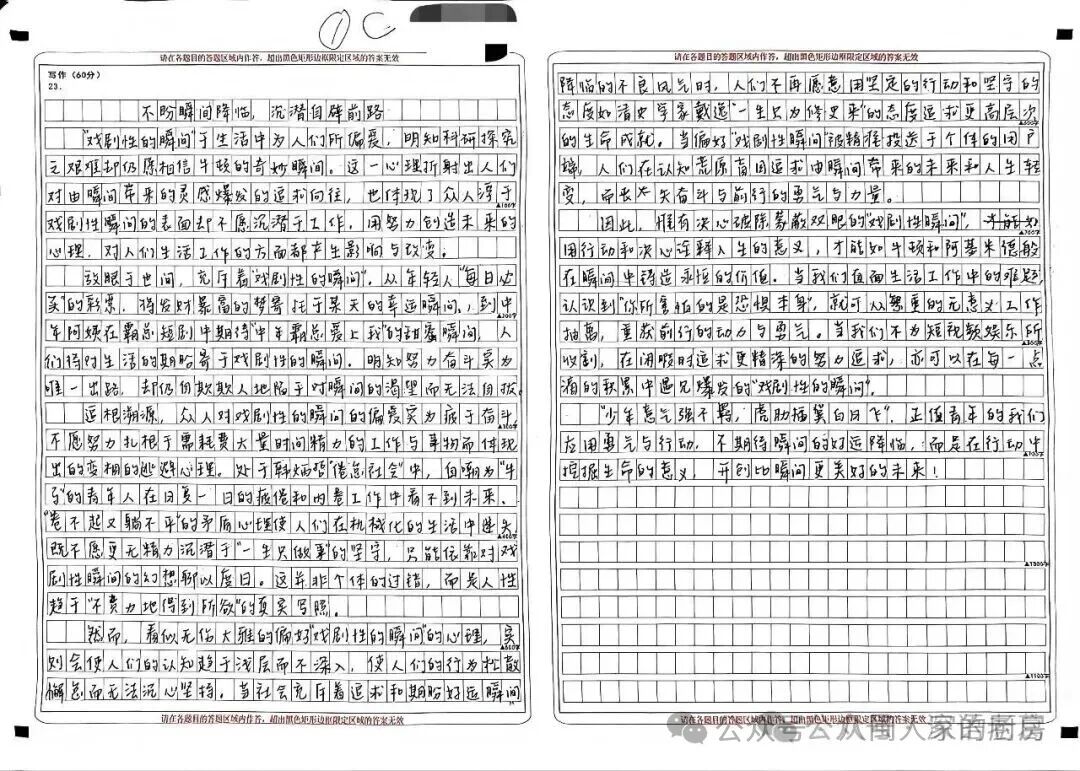 ①C
请在各题目的答题区域内作答，超出黑色矩形边框限定区域的答案无效
写作（60分）
23.
不盼瞬间降临，沉潜自辟前路
“戏剧性的瞬间”于生活中为人们所偏爱，明知科研探究
之艰难却仍愿相信牛顿的奇妙瞬间。这一心理折射出人们
对由瞬间带来的灵感爆发的追求向往，也体现了众人浮于
▲100字
戏剧性瞬间的表面却不愿沉潜于工作，用努力创造未来的
心理，对人们生活工作的方面都产生影响与改变。
放眼于世间，充斥着“戏剧性的瞬间”。从年轻人“每日必
买”的彩票，将发财暴富的梦寄托于某天的幸运瞬间，到中
▲200字
年阿姨在霸总短剧中期待“中年霸总爱上我”的甜蜜瞬间，人
们将对生活的期盼寄于戏剧性的瞬间。明知努力奋斗实为
唯一出路，却仍自欺欺人地陷于对瞬间的渴望而无法自拔。
追根溯源，众人对戏剧性的瞬间的偏爱实为疲于奋斗，
▲300字
不愿努力扎根于需耗费大量时间精力的工作与事物而体现
出的变相的逃避心理。处于韩炳哲“倦怠社会”中，自嘲为“牛
马”的青年人在日复一日的疲倦和内卷工作中看不到未来，
“卷不起又躺不平”的矛盾心理使人们在机械化的生活中迷失，
▲400字
既不愿更无精力沉潜于“一生只做事”的坚守，只能依靠对戏
剧性瞬间的幻想聊以度日。这并非个体的过错，而是人性
趋于“不费力地得到所欲”的真实写照。
然而，看似无伤大雅的偏好“戏剧性的瞬间”的心理，实
▲500字
则会使人们的认知趋于浅层而不深入，使人们的行为松散
懈怠而无法沉心坚持。当社会充斥着追求和期盼好运瞬间
请在各题目的答题区域内作答，超出黑色矩形边框限定区域的答案无效
请在各题目的答题区域内作答，超出黑色矩形边框限定区域的答案无效
降临的不良风气时，人们不再愿意用坚定的行动和坚守的
态度如清史学家戴逸“一生只为修史来”的态度追求更高层次
▲600字
的生命成就。当偏好“戏剧性瞬间”被精准投送于个体的用户
端，人们在认知荒原盲目追求由瞬间带来的未来和人生轻
变，而丧失奋斗与前行的勇气与力量。
因此，惟有决心破除蒙蔽双眼的“戏剧性瞬间”，
▲700字
用行动和决心诠释人生的意义，才能如牛顿和阿基米德般
在瞬间中铸造永恒的价值。当我们直面生活工作中的难题，
认识到“你所害怕的是恐惧本身”，就可从繁重的无意义工作
抽离，重获前行的动力与勇气。当我们不为短视频娱乐所
▲800字
收割，在闲暇时追求更精深的努力追求，亦可以在每一点
滴的积累中遇见爆发的“戏剧性的瞬间”。
“少年意气强不羁，虎胁插翼白日飞”。正值青年的我们
应用勇气与行动，不期待瞬间的好运降临，而是在行动中
▲900字
挖掘生命的意义，开创比瞬间更美好的未来！
▲1000字
▲1100字
请在各题目的答题区域内作答，超出黑色矩形边框限定区域的答案无效
公众号公众闽人家的厨房